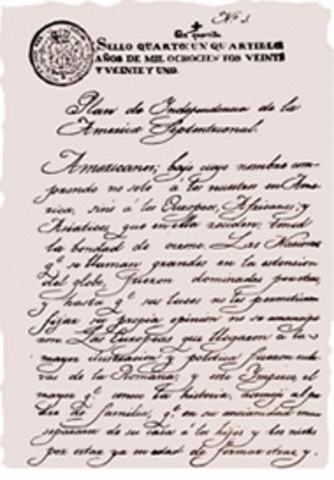 Nº 1.
Un quartillo
SELLO QUARTO: UN QUARTILLO
AÑOS DE MIL OCHOCIENTOS VEINTE
Y VEINTE Y UNO.
Plan de Independencia de la
America Septentrional.
Americanos; bajo cuyo nombre com-
prendo no solo á los nacidos en Ame-
rica, sinó á los Europeos, Africanos, y
Asiaticos que en ella residen: tened
la bondad de oirme. Las Naciones
q.e se llaman grandes en la extension
del globo, fueron dominadas por otras,
y hasta q.e sus luces no les permitieron
fijar su propia opinion no se emancipa-
ron. Las Europeas que llegaron á la
mayor ilustracion y politica fueron escla-
vas de la Romana; y este Imperio, el
mayor q.e conoce la historia, asemejó al pa-
dre de familia, q.e en su ancianidad mira
separarse de su casa á los hijos y los nietos
por estar ya en edad de formar otras, y